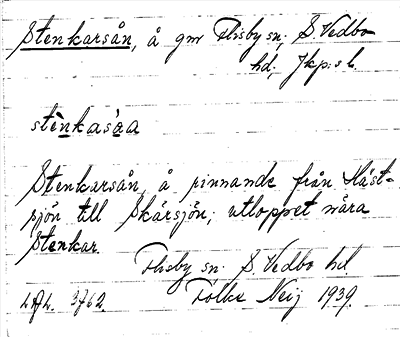 Stenkarsån, å gm Flisby sn; S. Vedbo
hd; Jkp:s l.
stènkasåa
Stenkarsån, å rinnande från Häst-
sjön till Skärsjön; utloppet nära
Stenkar.
Flisby sn. S. Vedbo hd
3762. Folke Neij 1939.